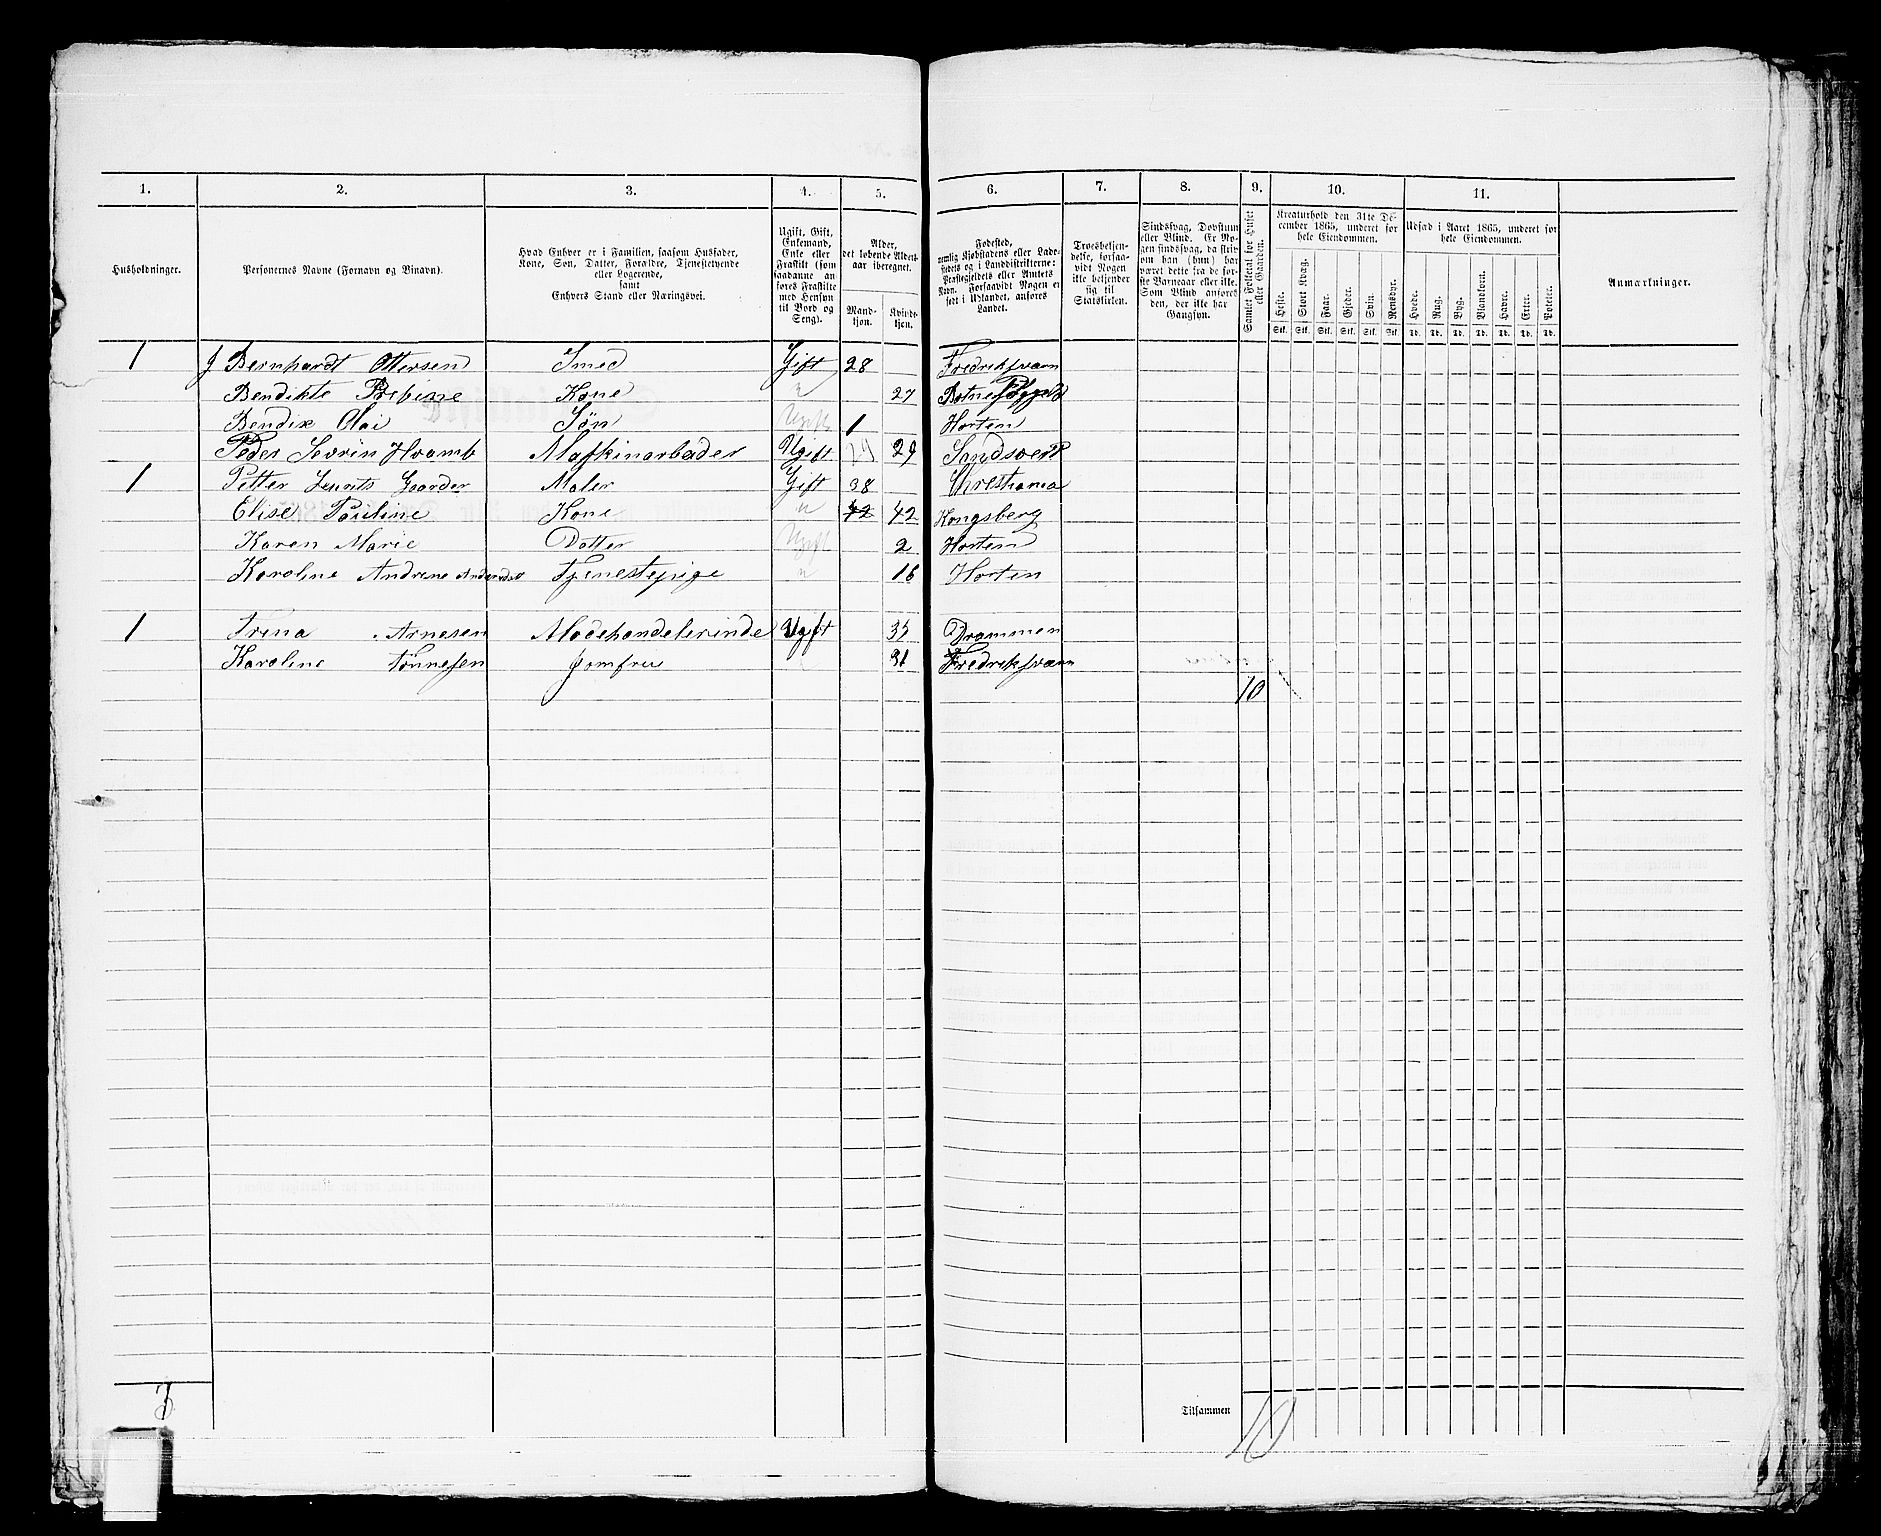 1. 2. 3. 4. 5. 6. 7. 8. 9. 10. 11.
Husholdninger.
Personernes Navne (Fornavn og Binavn).
Hvad Enhver er i Familien, saasom Husfader,
Kone, Søn, Datter, Forældre, Tjenestetyende
eller Logerende,
samt
Enhvers Stand eller Næringsvei.
Ugift, Gift,
Enkemand,
Enke eller
Fraskilt (som
saadanne an-
føres Fraskilte
med Hensyn
til Bord og
Seng).
Alder,
det løbende Alders-
aar iberegnet.
Mand-
kjøn.
Kvinde-
kjøn.
Fødested,
nemlig Kjøbstadens eller Lade-
stedets og i Landdistrikterne:
Præstegjeldets eller Amtets
Navn. Forsaavidt Nogen er
født i Udlandet, anføres
Landet.
Troesbekjen-
delse, forsaa-
vidt Nogen
ikke bekjender
sig til
Statskirken.
Sindssvag, Døvstum
eller Blind. Er No-
gen sindssvag, da skriv
om han (hun) har
været dette fra de før-
ste Barneaar eller ikke.
Som Blind anføres
den, der ikke har
Gangsyn.
Samlet Folketal for Huset
eller Gaarden.
Kreaturhold den 31te De-
cember 1865, underet for
hele Eiendommen.
Heste. Stort Kvæg. Faar. Gjeder. Svin. Rensdyr.
Stk. Stk. Stk. Stk. Stk. Stk.
Udsæd i Aaret 1865, underet for
hele Eiendommen.
Hvede. Rug. Byg. Blandkorn. Havre. Erter. Poteter.
Td. Td. Td. Td. Td. Td. Td.
Anmærkninger.
1 Bernhardt Ottersen Smed Gift 28 Fredriksværn
Bendikte Kone " 27
Bendix Olai Søn Ugift 1 Horten
Peder Sevrin Hvamb Maskinarbader Ugift 29 Sandsvert
1 Petter Laurits Gaarder Maler Gift 38 Christiania
Elise Pauline Kone " 42 42 Kongsberg
Karen Marie Datter Ugift 2 Horten
Karoline Andrene Tjenestepige " 16 Horten
1 Trina Arnesen Modehandelerinde Ugift 35 Drammen
Karoline Tønnesen Jomfru 31 Fredriksværn
10
3
Tilsammen
10